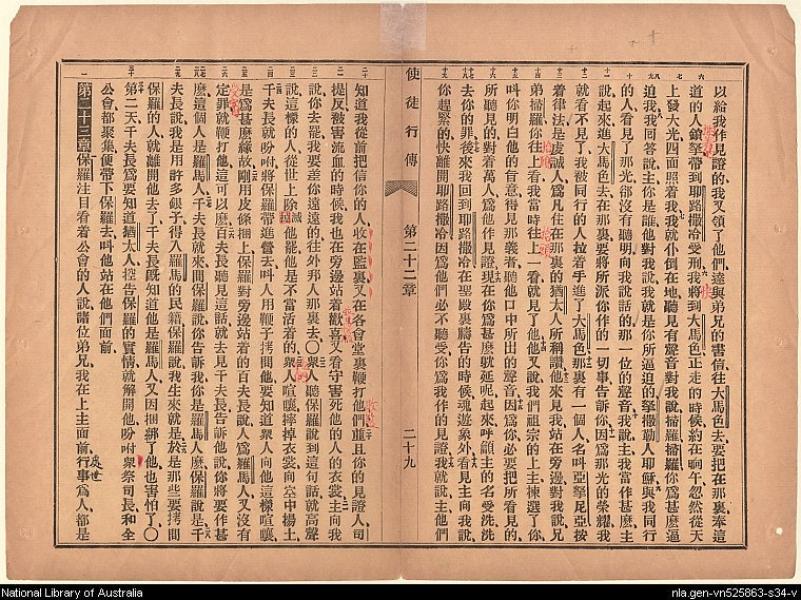 以給我作見證的我又領了他們達與弟兄的書信往大馬色去要把在那裏奉這
道的人鎖拏帶到耶路撒冷受刑我將到大馬色正走的時候約在晌午忽然從天
上發大光四面照着我我就仆倒在地聽見有聲音對我說掃羅掃羅你爲甚麼逼
迫我我回答說主你是誰他對我說我就是你所逼迫的拏撒勒人耶穌與我同行
的人看見了那光卻沒有聽明向我說話的那一位的聲音我說主我當作甚麼主
說起來進大馬色去在那裏要將所派你作的一切事告訴你因爲那光的榮耀我
就看不見了我被同行的人拉着手進了大馬色那裏有一個人名叫亞拏尼亞按
着律法是虔誠人爲凡住在那裏的猶太人所稱讚他來見我站在旁邊對我說兄
弟掃羅你往上看我當時往上一看就見了他他又說我們祖宗的上主揀選了你
叫你明白他的旨意得見那義者聽他口中所出的聲音因爲你必要把所看見的
所聽見的對着萬人爲他作見證現在你爲甚麼躭延呢起來呼籲主的名受洗洗
去你的罪後來我回到耶路撒冷在聖殿裏禱告的時候魂遊象外看見主向我說
你趕緊的快離開耶路撒冷因爲他們必不聽受你爲我作的見證我就說主他們
使徒行傳 第二十二章 二十九
知道我從前把信你的人收在監裏又在各會堂裏鞭打他們並且你的見證人司
提反被害流血的時候我也在旁邊站着歡喜又看守害死他的人的衣裳主向我
說你去罷我要差你遠遠的往外邦人那裏去〇衆人聽保羅說到這句話就高聲
說這樣的人從世上除滅他罷他是不當活着的衆人喧嚷摔掉衣裳向空中揚土
千夫長就吩咐將保羅帶進營去叫人用鞭子拷問他要知道衆人向他這樣喧嚷
是爲甚麼緣故剛用皮條捆上保羅對旁邊站着的百夫長說人爲羅馬人又沒有
定罪就鞭打他這可以麼百夫長聽見這話就去見千夫長告訴他說你將要作甚
麼這個人是羅馬人千夫長就來問保羅說你告訴我你是羅馬人麼保羅說是千
夫長說我是用許多銀子得入羅馬的民籍保羅說我生來就是於是那些要拷問
保羅的人就離開他去了千夫長旣知道他是羅馬人又因捆綁了他也害怕了〇
第二天千夫長爲要知道猶太人控告保羅的實情就解開他吩咐衆祭司長和全
公會都聚集便帶下保羅去叫他站在他們面前
第二十三章保羅注目看着公會的人說諸位弟兄我在上主面前行事爲人都是
National Library of Australia
nla.gen-vn525863-s34-v